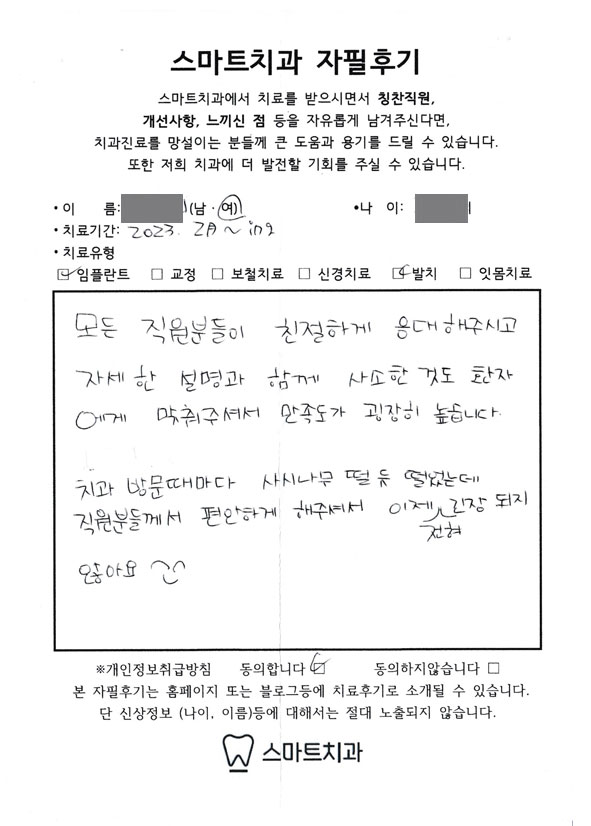 스마트치과 자필후기
스마트치과에서 치료를 받으시면서 칭찬직원,
개선사항, 느끼신 점 등을 자유롭게 남겨주신다면,
치과진료를 망설이는 분들께 큰 도움과 용기를 드릴 수 있습니다.
또한 저희 치과에 더 발전할 기회를 주실 수 있습니다.
•이 름: (남 · 여) •나 이:
•치료기간: 2023. 2月 ~ ing
•치료유형
☑임플란트 □교정 □보철치료 □신경치료 ☑발치 □잇몸치료
모든 직원분들이 친절하게 응대해주시고
자세한 설명과 함께 사소한 것도 환자
에게 맞춰주셔서 만족도가 굉장히 높습니다.
치과 방문때마다 사시나무 떨 듯 떨었는데
직원분들께서 편안하게 해주셔서 이제 전혀 긴장 되지
않아요 ^^
※개인정보취급방침 동의합니다 ☑ 동의하지않습니다 □
본 자필후기는 홈페이지 또는 블로그등에 치료후기로 소개될 수 있습니다.
단 신상정보 (나이, 이름)등에 대해서는 절대 노출되지 않습니다.
스마트치과